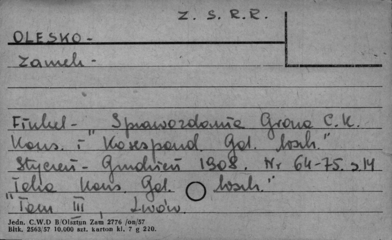 Z. S. R. R.
OLESKO -
Zamek -
Finkel - Sprawozdania Grona C. K.
Kons. i "Korespond. Gal. wsch."
Styczeń - Grudzień 1908. Nr 64-75. s. 14
Teka Kons. Gal. wsch."
"Tom III, Lwów.
Jedn. C.W.D B/Olsztyn Zam 2776 /oa/57
Bltk. 2563/57 10,000 szt. karton kl. 7 g 220.